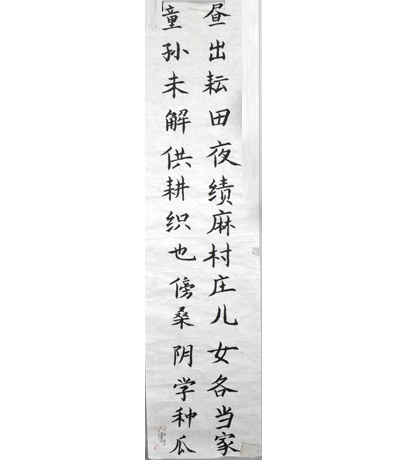 昼出耘田夜绩麻村庄儿女各当家
童孙未解供耕织也傍桑阴学种瓜